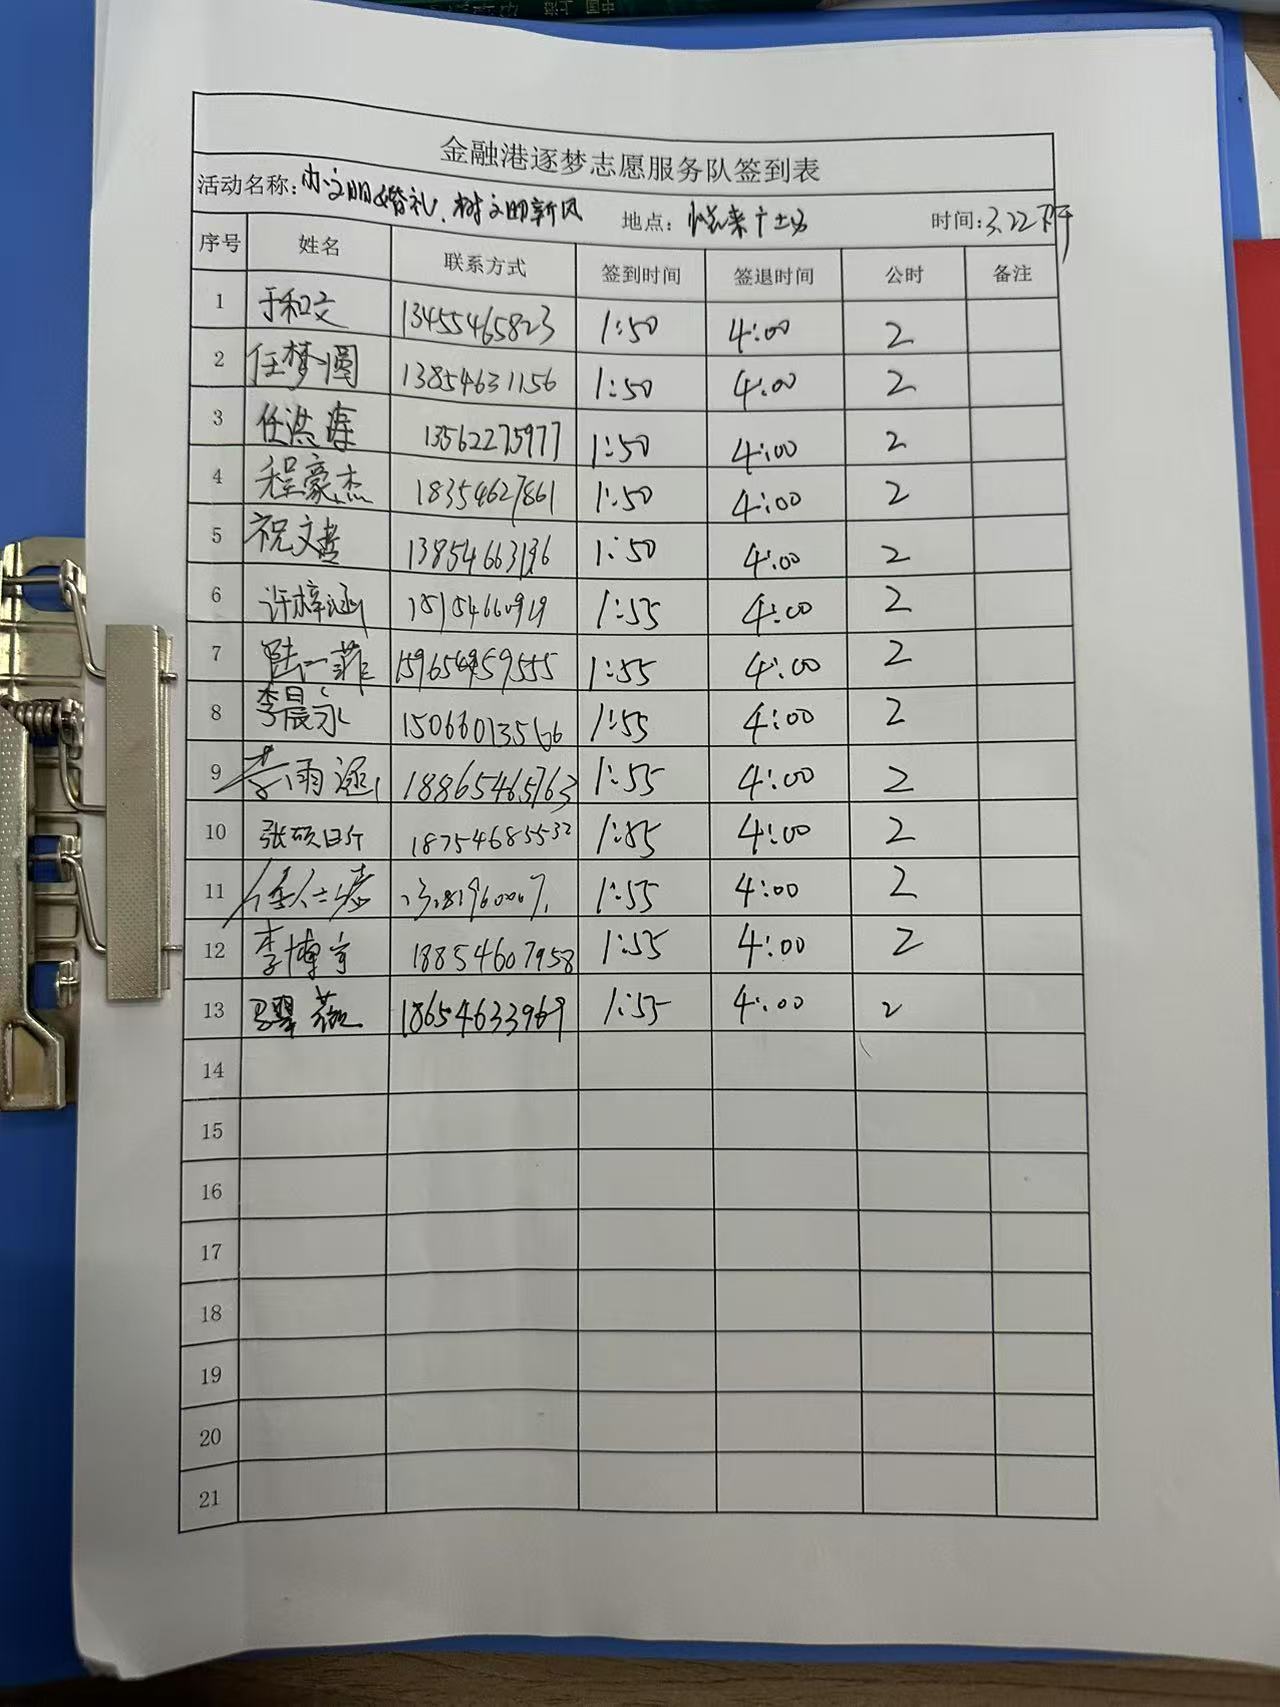 金融港逐梦志愿服务队签到表
活动名称: 办文明婚礼、树文明新风 地点: 悦来广场 时间: 3.22下午
序号 姓名 联系方式 签到时间 签退时间 公时 备注
1 于和文 13455465823 1:50 4:00 2
2 任梦圆 13854631156 1:50 4:00 2
3 任洪涛 13562275977 1:50 4:00 2
4 程豪杰 18354627861 1:50 4:00 2
5 祝文 1:50 4:00 2
6 许梓涵 1:55 4:00 2
7 陆一菲 1:55 4:00 2
8 李晨永 15066013566 1:55 4:00 2
9 李雨 18865465763 1:55 4:00 2
10 张硕 18754685532 1:55 4:00 2
11 1:55 4:00 2
12 李博宇 18854607958 1:55 4:00 2
13 18654633969 1:55 4:00 2
14
15
16
17
18
19
20
21